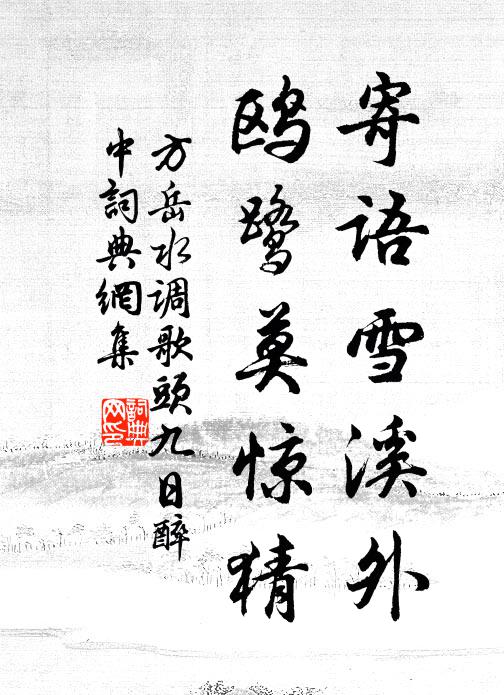 寄语雪溪外
鸥鹭莫惊猜
方岳水调歌头九日醉
中詞典網集
詞典
网印